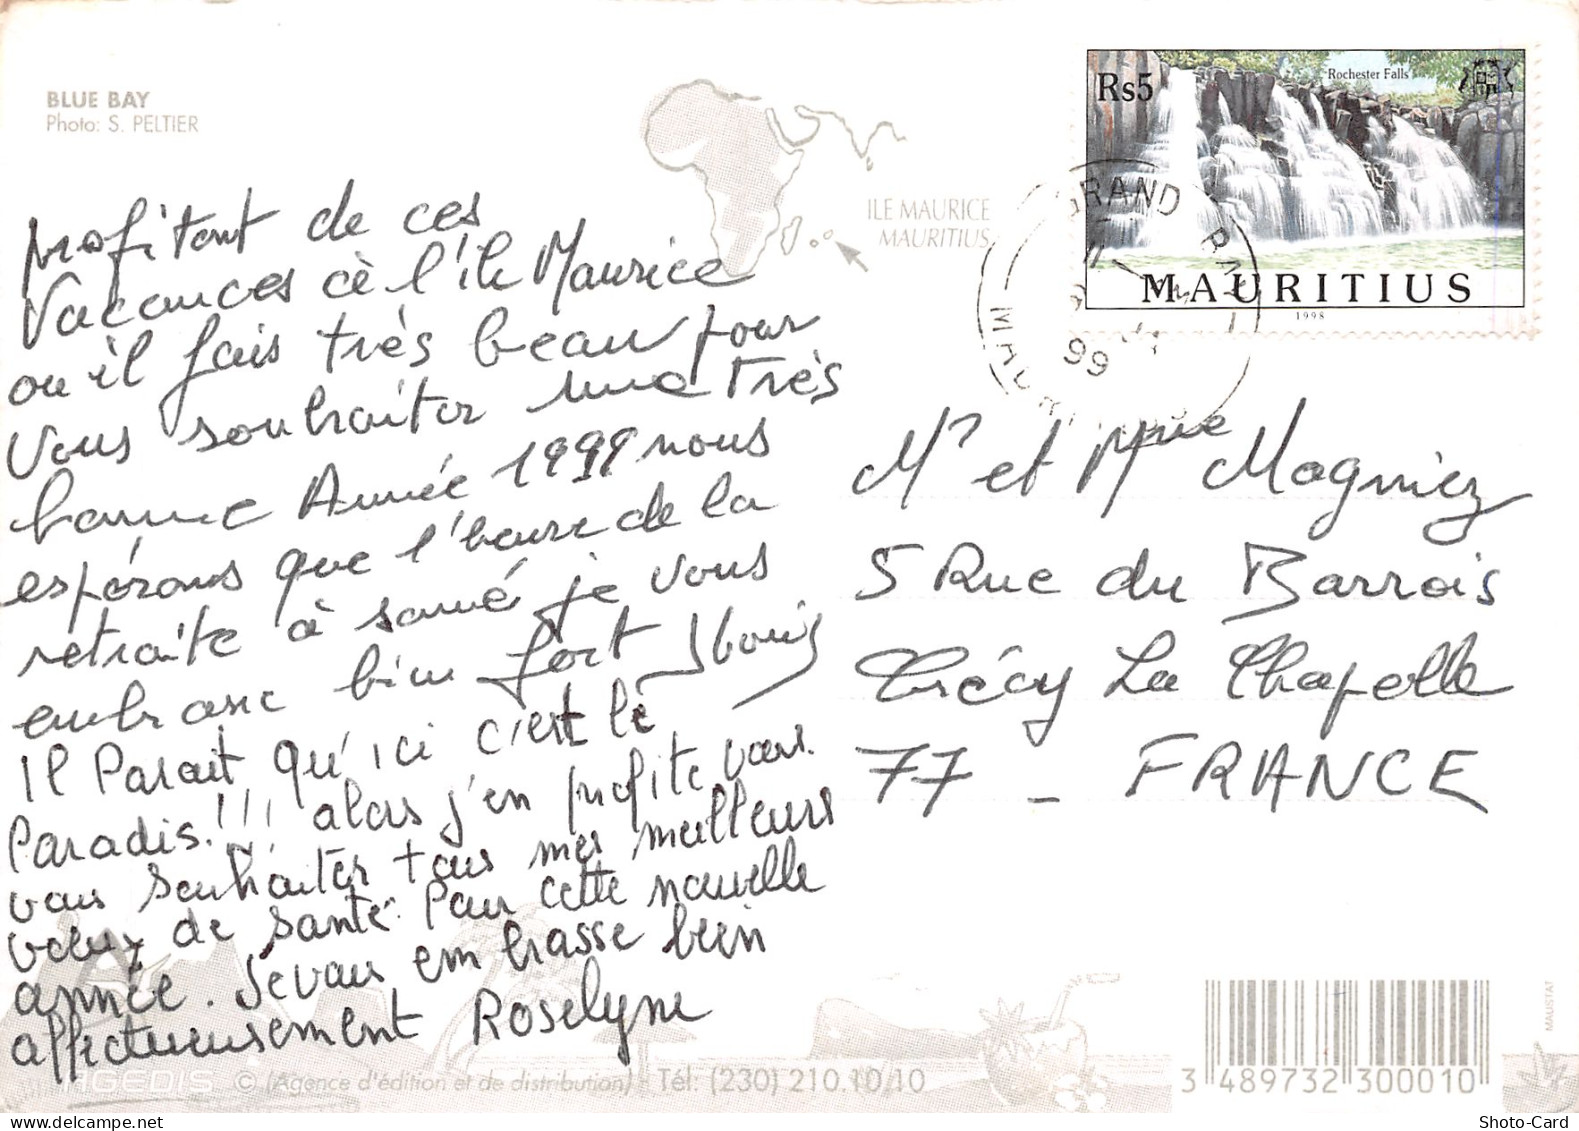 BLUE BAY
Photo: S. PELTIER
ILE MAURICE
MAURITIUS
Rs5
Rochester Falls
MAURITIUS
1998
GRAND
99
profitant de ces
Vacances à l'île Maurice
ou il fais très beau pour
vous souhaiter une très
bonne Année 1999 nous
espérons que l'heure de la
retraite à sonné je vous
embrasse bien fort
Il Parait qu'ici c'est le
Paradis!!! alors j'en profite vous
vous souhaiter tous mes meilleurs
vœux de santé. Pour cette nouvelle
année. Je vous embrasse bien
affectueusement Roselyne
Mr et Mme Magniez
5 Rue du Barrois
Crécy La Chapelle
77 - FRANCE
AGEDIS © (Agence d'édition et de distribution) - Tél: (230) 210.10.10
3 489732 300010
MAUSTAT
Shoto-Card